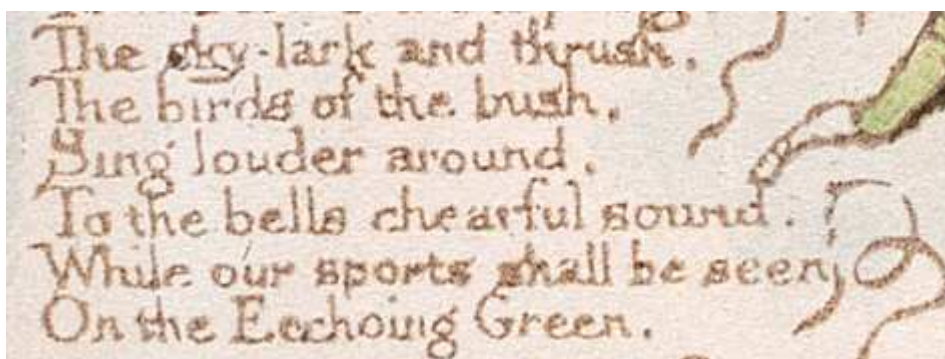 The sky-lark and thrush.
The birds of the bush,
Sing louder around,
To the bells chearful sound.
While our sports shall be seen
On the Ecchoing Green.